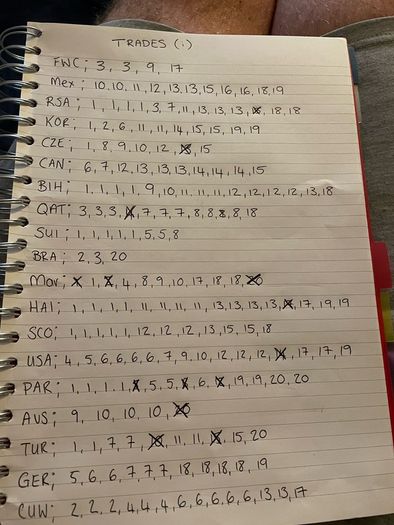 TRADES (1)
FWC; 3, 3, 9, 17
Mex; 10, 10, 11, 12, 13, 13, 15, 16, 16, 18, 19
RSA; 1, 1, 1, 1, 3, 7, 11, 13, 13, 13, 18, 18
KOR; 1, 2, 6, 11, 11, 14, 15, 15, 19, 19
CZE; 1, 8, 9, 10, 12, 15
CAN; 6, 7, 12, 13, 13, 13, 14, 14, 14, 15
BIH; 1, 1, 1, 1, 9, 10, 11, 11, 11, 12, 12, 12, 12, 13, 18
QAT; 3, 3, 3, 7, 7, 7, 8, 8, 8, 8, 18
SUI; 1, 1, 1, 1, 1, 5, 5, 8
BRA; 2, 3, 20
Mor; 1, 4, 8, 9, 10, 17, 18, 18
HAI; 1, 1, 1, 1, 1, 11, 11, 11, 11, 13, 13, 13, 13, 17, 19, 19
SCO; 1, 1, 1, 1, 1, 12, 12, 12, 13, 15, 15, 18
USA; 4, 5, 6, 6, 6, 6, 7, 9, 10, 12, 12, 12, 17, 17, 19
PAR; 1, 1, 1, 1, 5, 5, 6, 19, 19, 20, 20
AUS; 9, 10, 10, 10
TUR; 1, 1, 7, 7, 11, 11, 15, 20
GER; 5, 6, 6, 7, 7, 7, 18, 18, 18, 18, 19
CUW; 2, 2, 2, 4, 4, 4, 6, 6, 6, 6, 6, 13, 13, 17